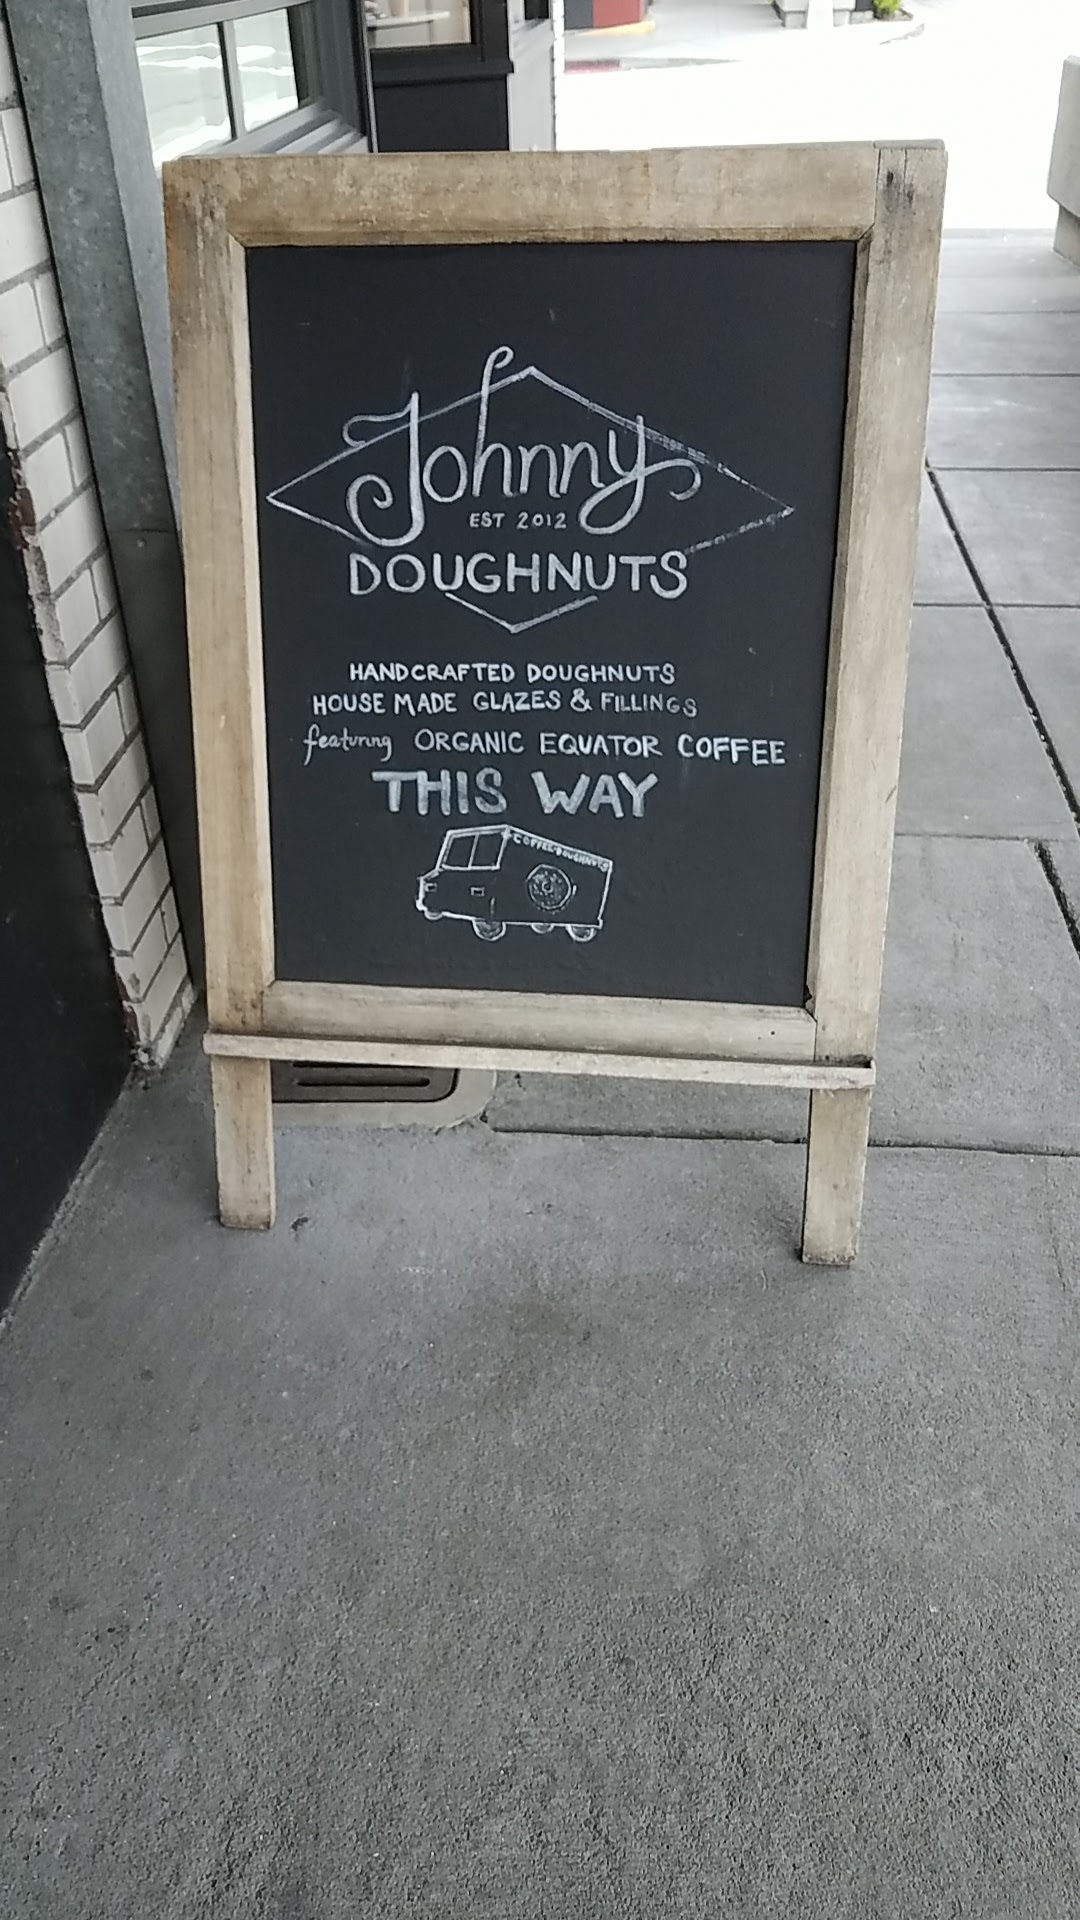 Johnny
EST 2012
DOUGHNUTS
HANDCRAFTED DOUGHNUTS
HOUSE MADE GLAZES & FILLINGS
featuring ORGANIC EQUATOR COFFEE
THIS WAY
COFFEE·DOUGHNUTS